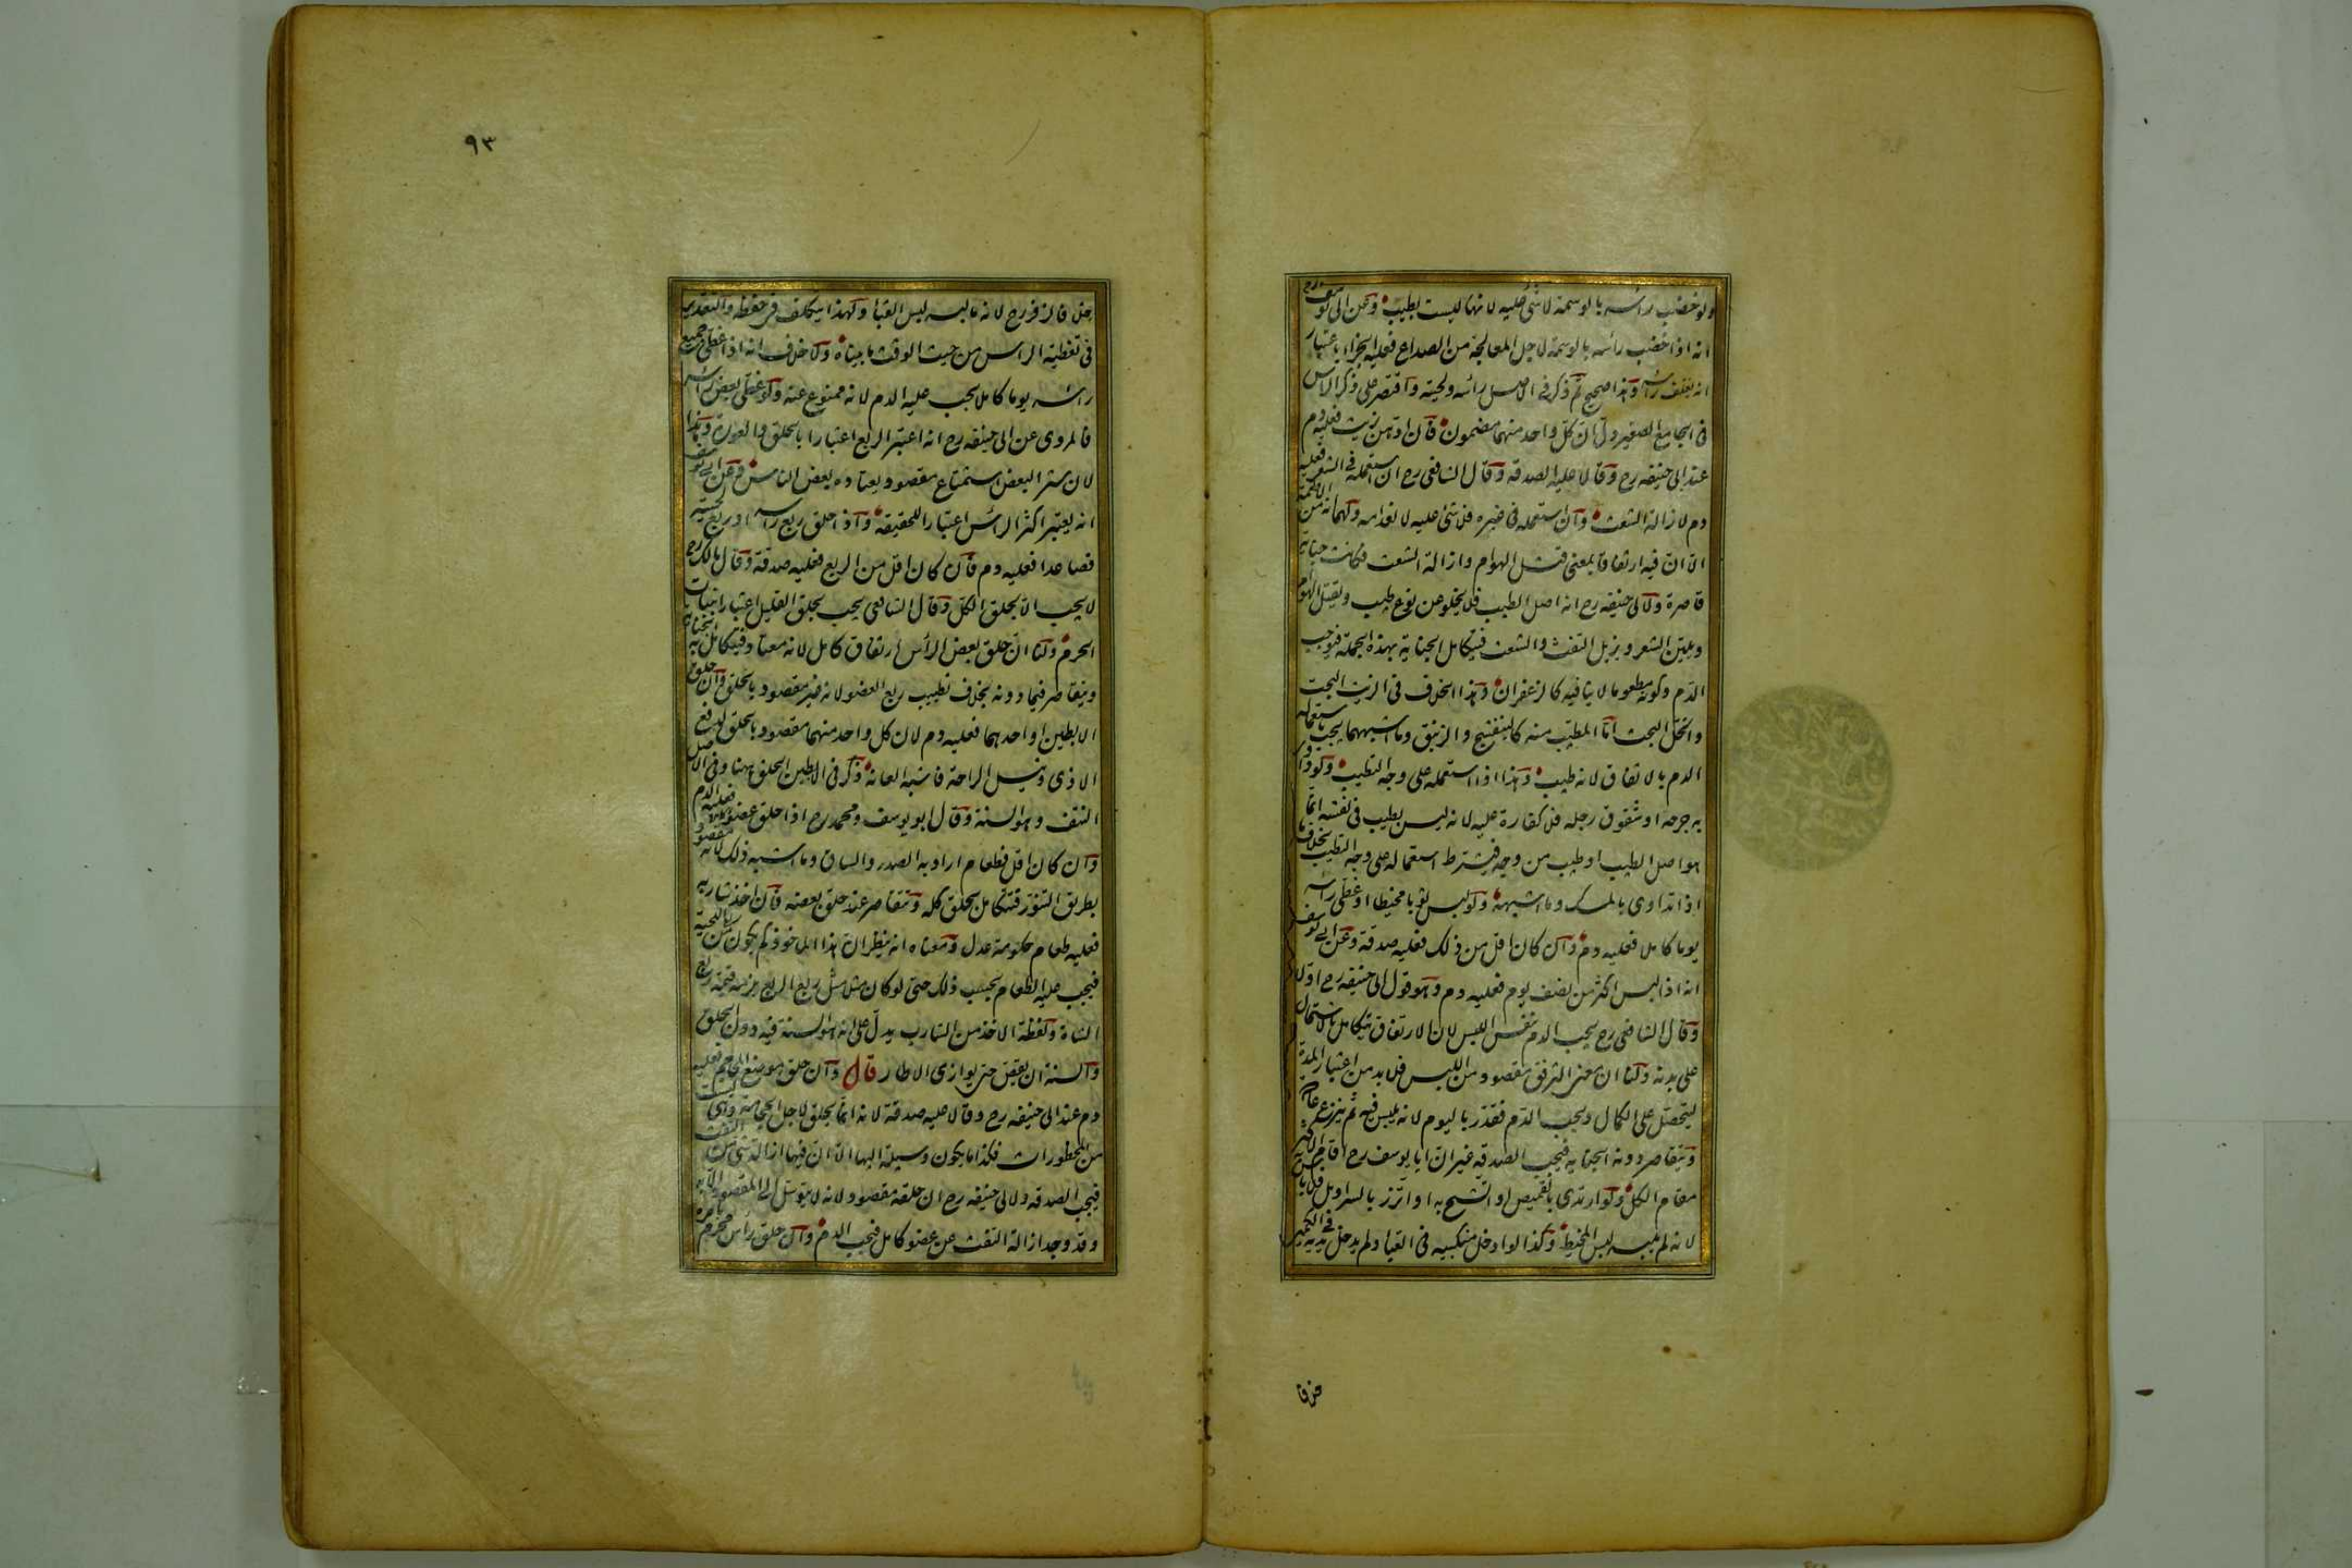 ولو خضب رأسه بالوسمة لا شئ عليه لانها ليست بطيب وعن ابى يوسف رح
انه اذا خضب رأسه بالوسمة لاجل المعالجة من الصداع فعليه الجزاء باعتبار
انه يغلف رأسه وهذا صحيح ثم ذكر فى الاصل رأسه ولحيته واقتصر على ذكر الرأس
فى الجامع الصغير دل ان كل واحد منهما مضمون فان ادهن بزيت فعليه دم
عند ابى حنيفه رح وقالا عليه الصدقه وقال الشافعى رح ان استعمله فى الشعر فعليه
دم لازالة الشعث وان استعمله فى غيره فلا شئ عليه لانعدامه ولهما انه من الاطعمة
الا ان فيه ارتفاقا بمعنى قتل الهوام وازالة الشعث فكانت جناية
قاصرة ولابى حنيفه رح انه اصل الطيب فلا يخلو عن نوع طيب ويقتل الهوام
ويلين الشعر ويزيل التفث والشعث فيتكامل الجناية بهذه الجملة فيوجب
الدم وكونه مطعوما لا ينافيه كالزعفران وهذا الخلاف فى الزيت البحت
والخل البحت اما المطيب منه كالبنفسج والزنبق وما اشبههما يجب باستعماله
الدم بالاتفاق لانه طيب وهذا اذا استعمله على وجه التطيب ولو داوى
به جرحه او شقوق رجله فلا كفارة عليه لانه ليس بطيب فى نفسه انما
هو اصل الطيب او طيب من وجه فيشترط استعماله على وجه التطيب بخلاف ما
اذا تداوى بالمسك وما اشبهه ولو لبس ثوبا مخيطا او غطى رأسه
يوما كاملا فعليه دم وان كان اقل من ذلك فعليه صدقة وعن ابى يوسف
انه اذا لبس اكثر من نصف يوم فعليه دم وهو قول ابى حنيفه رح اولا
وقال الشافعى رح يجب الدم بنفس اللبس لان الارتفاق يتكامل بالاشتمال
على بدنه ولنا ان معنى الترفق مقصود من اللبس فلا بد من اعتبار المدة
ليتحصل على الكمال ويجب الدم فقدر باليوم لانه يلبس فيه ثم ينزع عادة
وتتقاصر دونه الجناية فيجب الصدقه غير ان ابا يوسف رح اقام الاكثر
مقام الكل ولو ارتدى بالقميص او اتشح به او ائتزر بالسراويل فلا بأس به
لانه لم يلبسه لبس المخيط وكذا لو ادخل منكبيه فى القباء ولم يدخل يديه فى الكمين
خلافا
٩٣
خلافا لزفر رح لانه ما لبسه لبس القباء ولهذا يتكلف فى حفظه والتقدير
فى تغطية الرأس من حيث الوقت ما بيناه ولا خلاف انه اذا غطى جميع
رأسه يوما كاملا يجب عليه الدم لانه ممنوع عنه ولو غطى بعض رأسه
فالمروى عن ابى حنيفه رح انه اعتبر الربع اعتبارا بالحلق والعورة وهذا
لان ستر البعض استمتاع مقصود يعتاده بعض الناس وعن ابى يوسف
انه يعتبر اكثر الرأس اعتبارا للحقيقة واذا حلق ربع رأسه او ربع لحيته
فصاعدا فعليه دم فان كان اقل من الربع فعليه صدقة وقال مالك رح
لا يجب الا بحلق الكل وقال الشافعى يجب بحلق القليل اعتبارا بنبات
الحرم ولنا ان حلق بعض الرأس ارتفاق كامل لانه معتاد فيتكامل به الجناية
ويتقاصر فيما دونه بخلاف تطييب ربع العضو لانه غير مقصود باحلق وان حلق
الابطين او احدهما فعليه دم لان كل واحد منهما مقصود بالحلق لدفع
الاذى ونيل الراحة فاشبه العانة ذكر فى الابطين الحلق ههنا وفى الاصل
النتف وهو السنة وقال ابو يوسف ومحمد رح اذا حلق عضوا فعليه الدم
وان كان اقل فطعام اراد به الصدر والساق وما اشبه ذلك لانه مقصود
بطريق التنور فتتكامل بحلق كله وتتقاصر عند حلق بعضه فان اخذ شاربه
فعليه طعام حكومة عدل ومعناه انه ينظر ان هذا المأخوذ كم يكون من ربع اللحية
فيجب عليه الطعام بحسب ذلك حتى لو كان مثلا مثل ربع الربع يلزمه قيمة ربع
الشاة ولفظة الاخذ من الشارب يدل على انه هو السنة فيه دون الحلق
والسنة ان يقص حتى يوازى الاطار قال وان حلق موضع المحاجم فعليه
دم عند ابى حنيفه رح وقالا عليه صدقة لانه انما يحلق لاجل الحجامة وهى ليست
من المحظورات فكذا ما يكون وسيلة اليها الا ان فيها ازالة شئ من التفث
فيجب الصدقه ولابى حنيفه رح ان حلقه مقصود لانه لا يتوسل الى المقصود الا به
وقد وجد ازالة التفث عن عضو كامل فيجب الدم وان حلق رأس محرم بامره